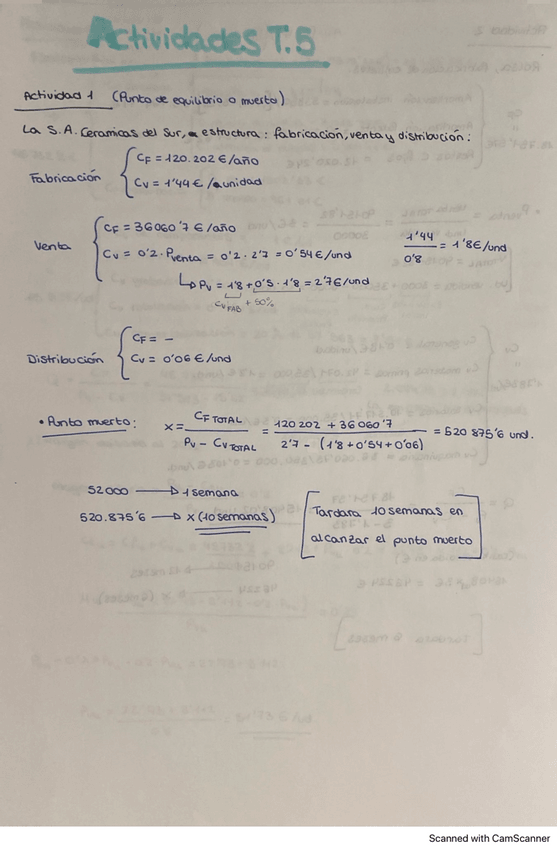 Actividades T.5
Actividad 1 (Punto de equilibrio o muerto)
La S.A. Ceramicas del Sur, estructura: fabricación, venta y distribución:
Fabricación
CF = 120.202 €/año
CV = 1'44 € / unidad
Venta
CF = 36060'7 €/año
CV = 0'2 · Pventa = 0'2 · 2'7 = 0'54 €/und
1'44 / 0'8 = 1'8 €/und
↳ PV = 1'8 + 0'5 · 1'8 = 2'7 €/und
CV FAB + 50%
Distribución
CF = –
CV = 0'06 €/und
• Punto muerto: x = CF TOTAL / PV - CV TOTAL = 120 202 + 36060'7 / 2'7 - (1'8 + 0'54 + 0'06) = 520 875'6 und.
52000 → 1 semana
520.875'6 → x (10 semanas)
[Tardara 10 semanas en
alcanzar el punto muerto]
Scanned with CamScanner